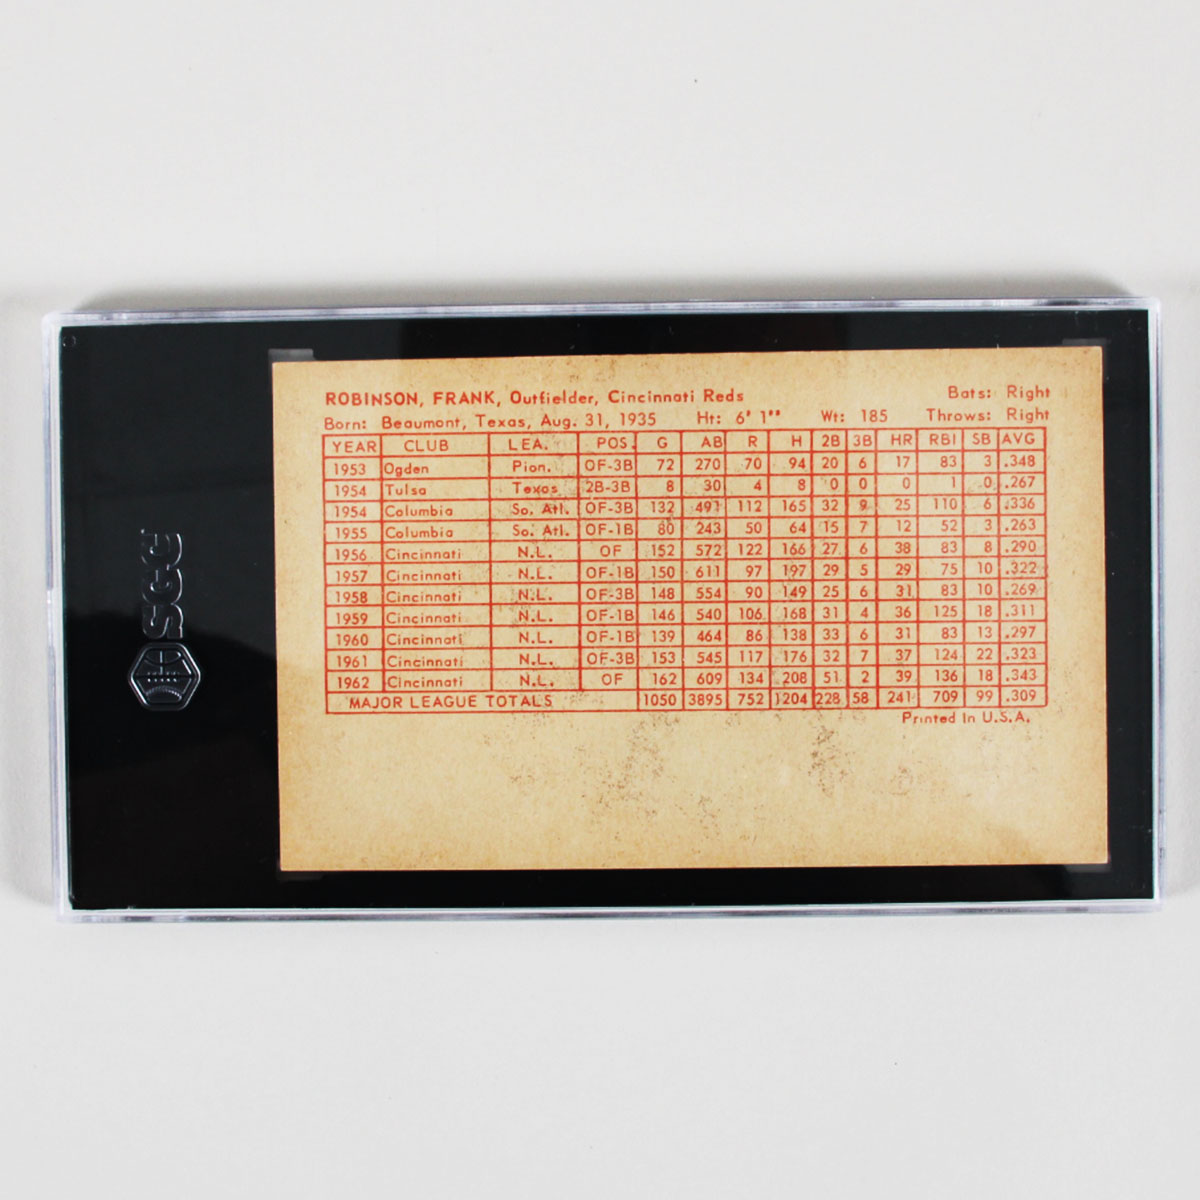 ROBINSON, FRANK, Outfielder, Cincinnati Reds Bats: Right
Born: Beaumont, Texas, Aug. 31, 1935 Ht: 6' 1" Wt: 185 Throws: Right
YEAR CLUB LEA. POS. G AB R H 2B 3B HR RBI SB AVG
1953 Ogden Pion. OF-3B 72 270 70 94 20 6 17 83 3 .348
1954 Tulsa Texas 2B-3B 8 30 4 8 0 0 0 1 0 .267
1954 Columbia So. Atl. OF-3B 132 491 112 165 32 9 25 110 6 .336
1955 Columbia So. Atl. OF-1B 80 243 50 64 15 7 12 52 3 .263
1956 Cincinnati N.L. OF 152 572 122 166 27 6 38 83 8 .290
1957 Cincinnati N.L. OF-1B 150 611 97 197 29 5 29 75 10 .322
1958 Cincinnati N.L. OF-3B 148 554 90 149 25 6 31 83 10 .269
1959 Cincinnati N.L. OF-1B 146 540 106 168 31 4 36 125 18 .311
1960 Cincinnati N.L. OF-1B 139 464 86 138 33 6 31 83 13 .297
1961 Cincinnati N.L. OF-3B 153 545 117 176 32 7 37 124 22 .323
1962 Cincinnati N.L. OF 162 609 134 208 51 2 39 136 18 .343
MAJOR LEAGUE TOTALS 1050 3895 752 1204 228 58 241 709 99 .309
Printed In U.S.A.
SGC